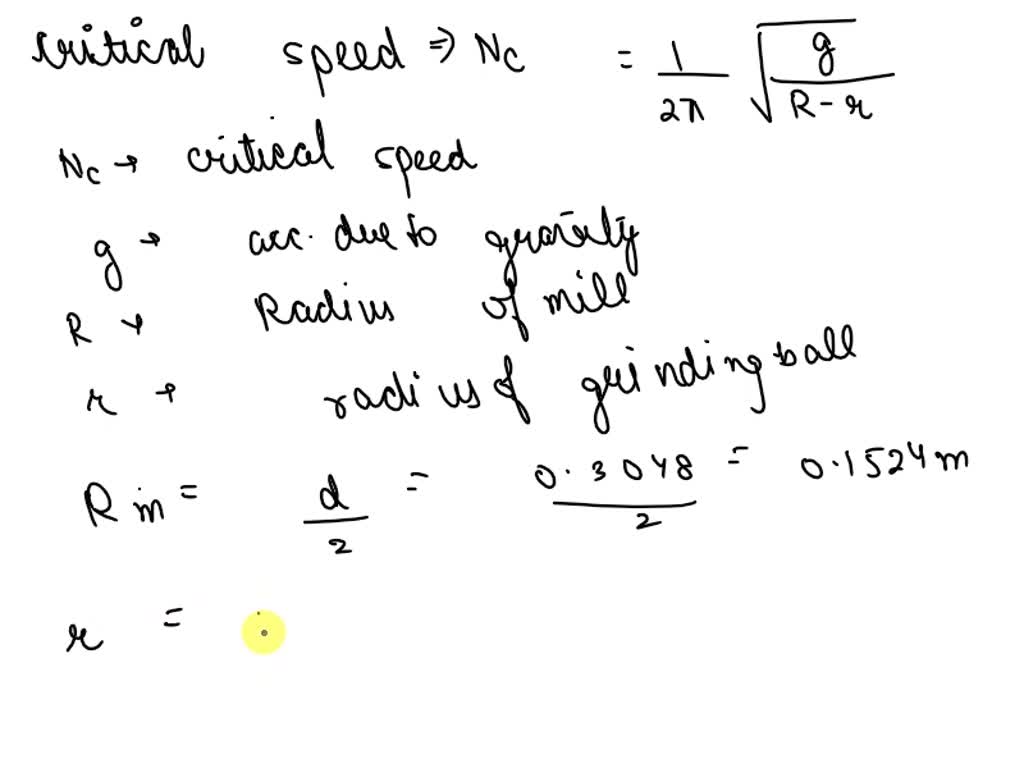 critical speed ⇒ Nc = 1/2π √g/R-r
Nc → critical speed
g → acc. due to gravity
R → Radius of mill
r → radius of grinding ball
R in = d/2 = 0.3048/2 = 0.1524m
r =